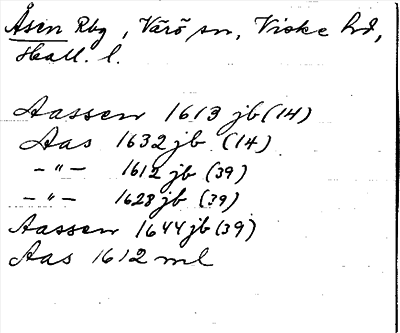 Åsen Rbg, Värö sn, Viske hd,
Hall. l.
Aassen 1613 jb (14)
Aas 1632 jb (14)
-"- 1612 jb (39)
-"- 1628 jb (39)
Aassen 1644 jb (39)
Aas 1612 ml